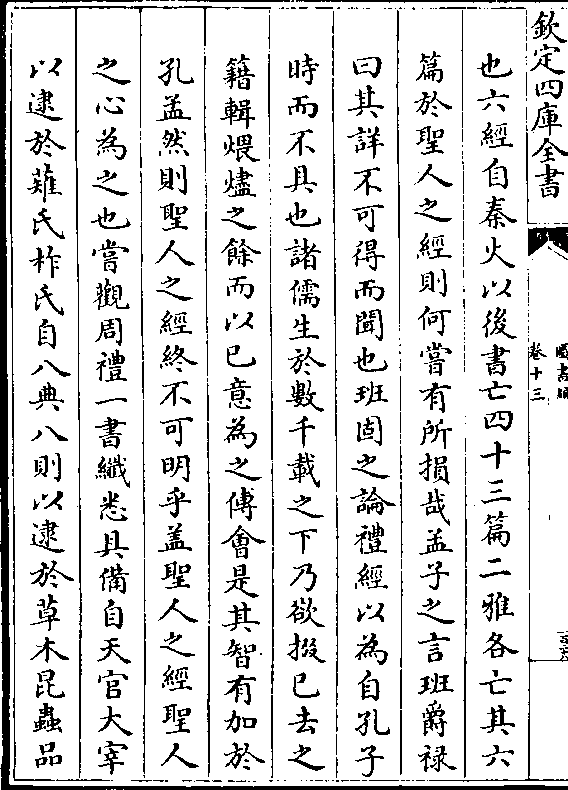 欽定四庫全書
卷十三
也六經自秦火以後書亡四十三篇二雅各亡其六
篇於聖人之經則何嘗有所損哉孟子之言班爵祿
曰其詳不可得而聞也班固之論禮經以為自孔子
時而不具也諸儒生於數千載之下乃欲掇已去之
籍輯煨燼之餘而以已意為之傳會是其智有加於
孔孟然則聖人之經終不可明乎盖聖人之經聖人
之心為之也嘗觀周禮一書纖悉具備自天官大宰
以逮於薙氏柞氏自八典八則以逮於草木昆蟲品